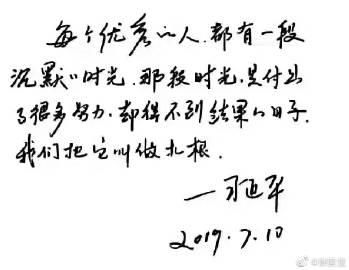 每个优秀的人.都有一段
沉默的时光.那段时光,是付出
了很多努力.却得不到结果的日子.
我们把它叫做扎根.
—习近平
2019.7.10